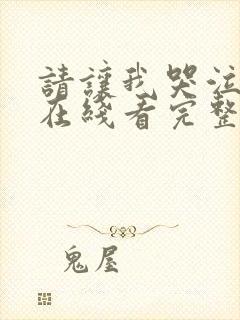 請讓我哭泣
在綫看完整
鬼屋